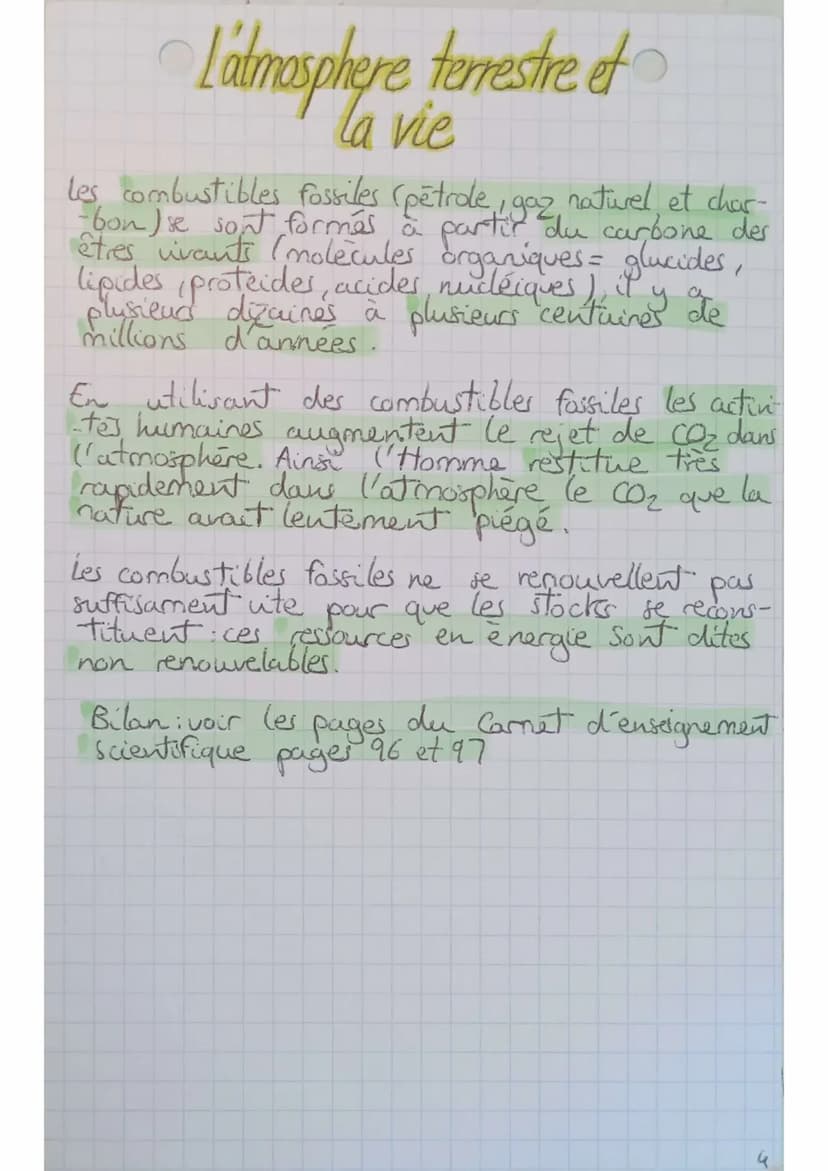 L'atmosphere terrestre et
la vie
Les combustibles fossiles (pétrole, gaz naturel et char-
-bon) se sont formés à partir du carbone des
êtres vivants (molécules organiques = glucides,
lipides, proteides, acides nucléiques), il y a
plusieurs dizaines à plusieurs centaines de
millions d'années.
En utilisant des combustibles fossiles les activi-
-tés humaines augmentent le rejet de CO2 dans
l'atmosphère. Ainsi l'Homme restitue très
rapidement dans l'atmosphère le CO2 que la
nature avait lentement piégé.
Les combustibles fossiles ne se renouvellent pas
suffisament vite pour que les stocks se recons-
tituent : ces ressources en énergie sont dites
non renouvelables.
Bilan : voir les pages du Carnet d'enseignement
scientifique pages 96 et 97
4